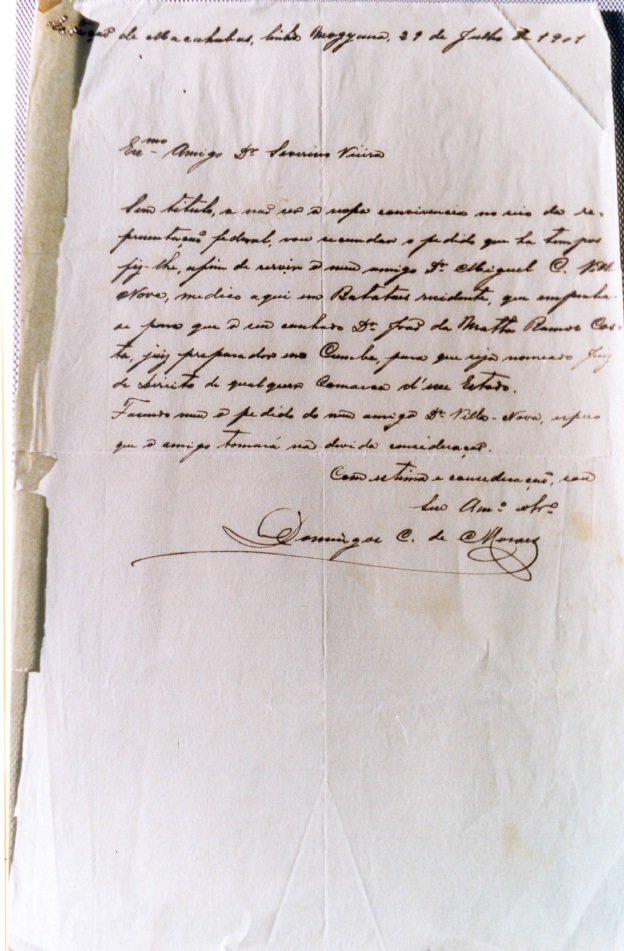 Estação de Macahubas, linha Mogyana, 29 de Julho de 1901
Exmo Amigo Dr. Severino Vieira
Sem titulo, a não ser a nossa convivencia no seio da re-
presentação federal, vou secundar o pedido que ha tempos
fiz-lhe, afim de servir a meu amigo Dr. Miguel C. Villa
Nova, medico aqui em Batataes residente, que empenha-
se para que o seu cunhado Dr. João da Matta Ramos Cos-
ta, juiz preparador em Cumbe, para que seja nomeado Juiz
de Direito de qualquer Comarca d'esse Estado.
Fazendo meu o pedido do meu amigo Dr. Villa-Nova, espero
que o amigo tomará na devida consideração.
Com estima e consideração, sou
Seu Amo. Obro.
Domingos C. de Moraes